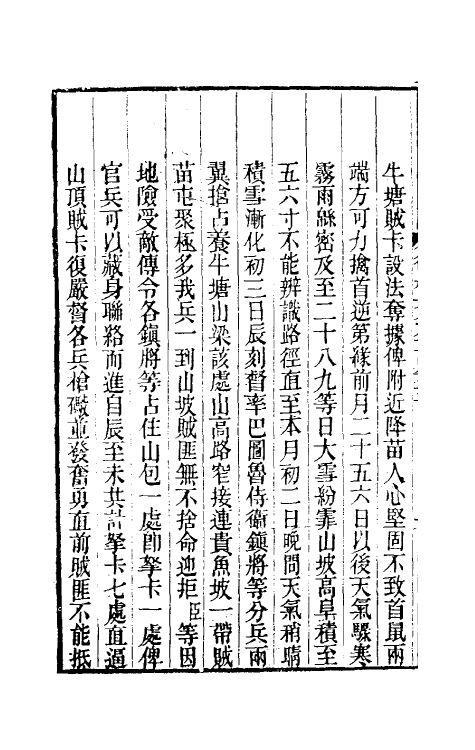 牛塘賊卡設法奪據俾附近降苗人心堅固不致首鼠兩
端方可力擒首逆第緣前月二十五六日以後天氣驟寒
霧雨綿密及至二十八九等日大雪紛霏山坡高阜積至
五六寸不能辨識路徑直至本月初二日晚間天氣稍晴
積雪漸化初三日辰刻督率巴圖魯侍衞鎭將等分兵兩
翼搶占養牛塘山梁該處山高路窄接連貴魚坡一帶賊
苗屯聚極多我兵一到山坡賊匪無不捨命迎拒臣等因
地險受敵傳令各鎭將等占住山包一處卽拏卡一處俾
官兵可以藏身聯絡而進自辰至未共計拏卡七處直逼
山頂賊卡復嚴督各兵槍礮並發奮勇直前賊匪不能抵